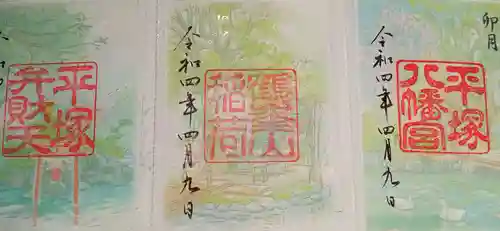 卯月
令和四年四月九日
平塚
八幡宮
令和四年四月九日
稲荷
平塚
弁財天